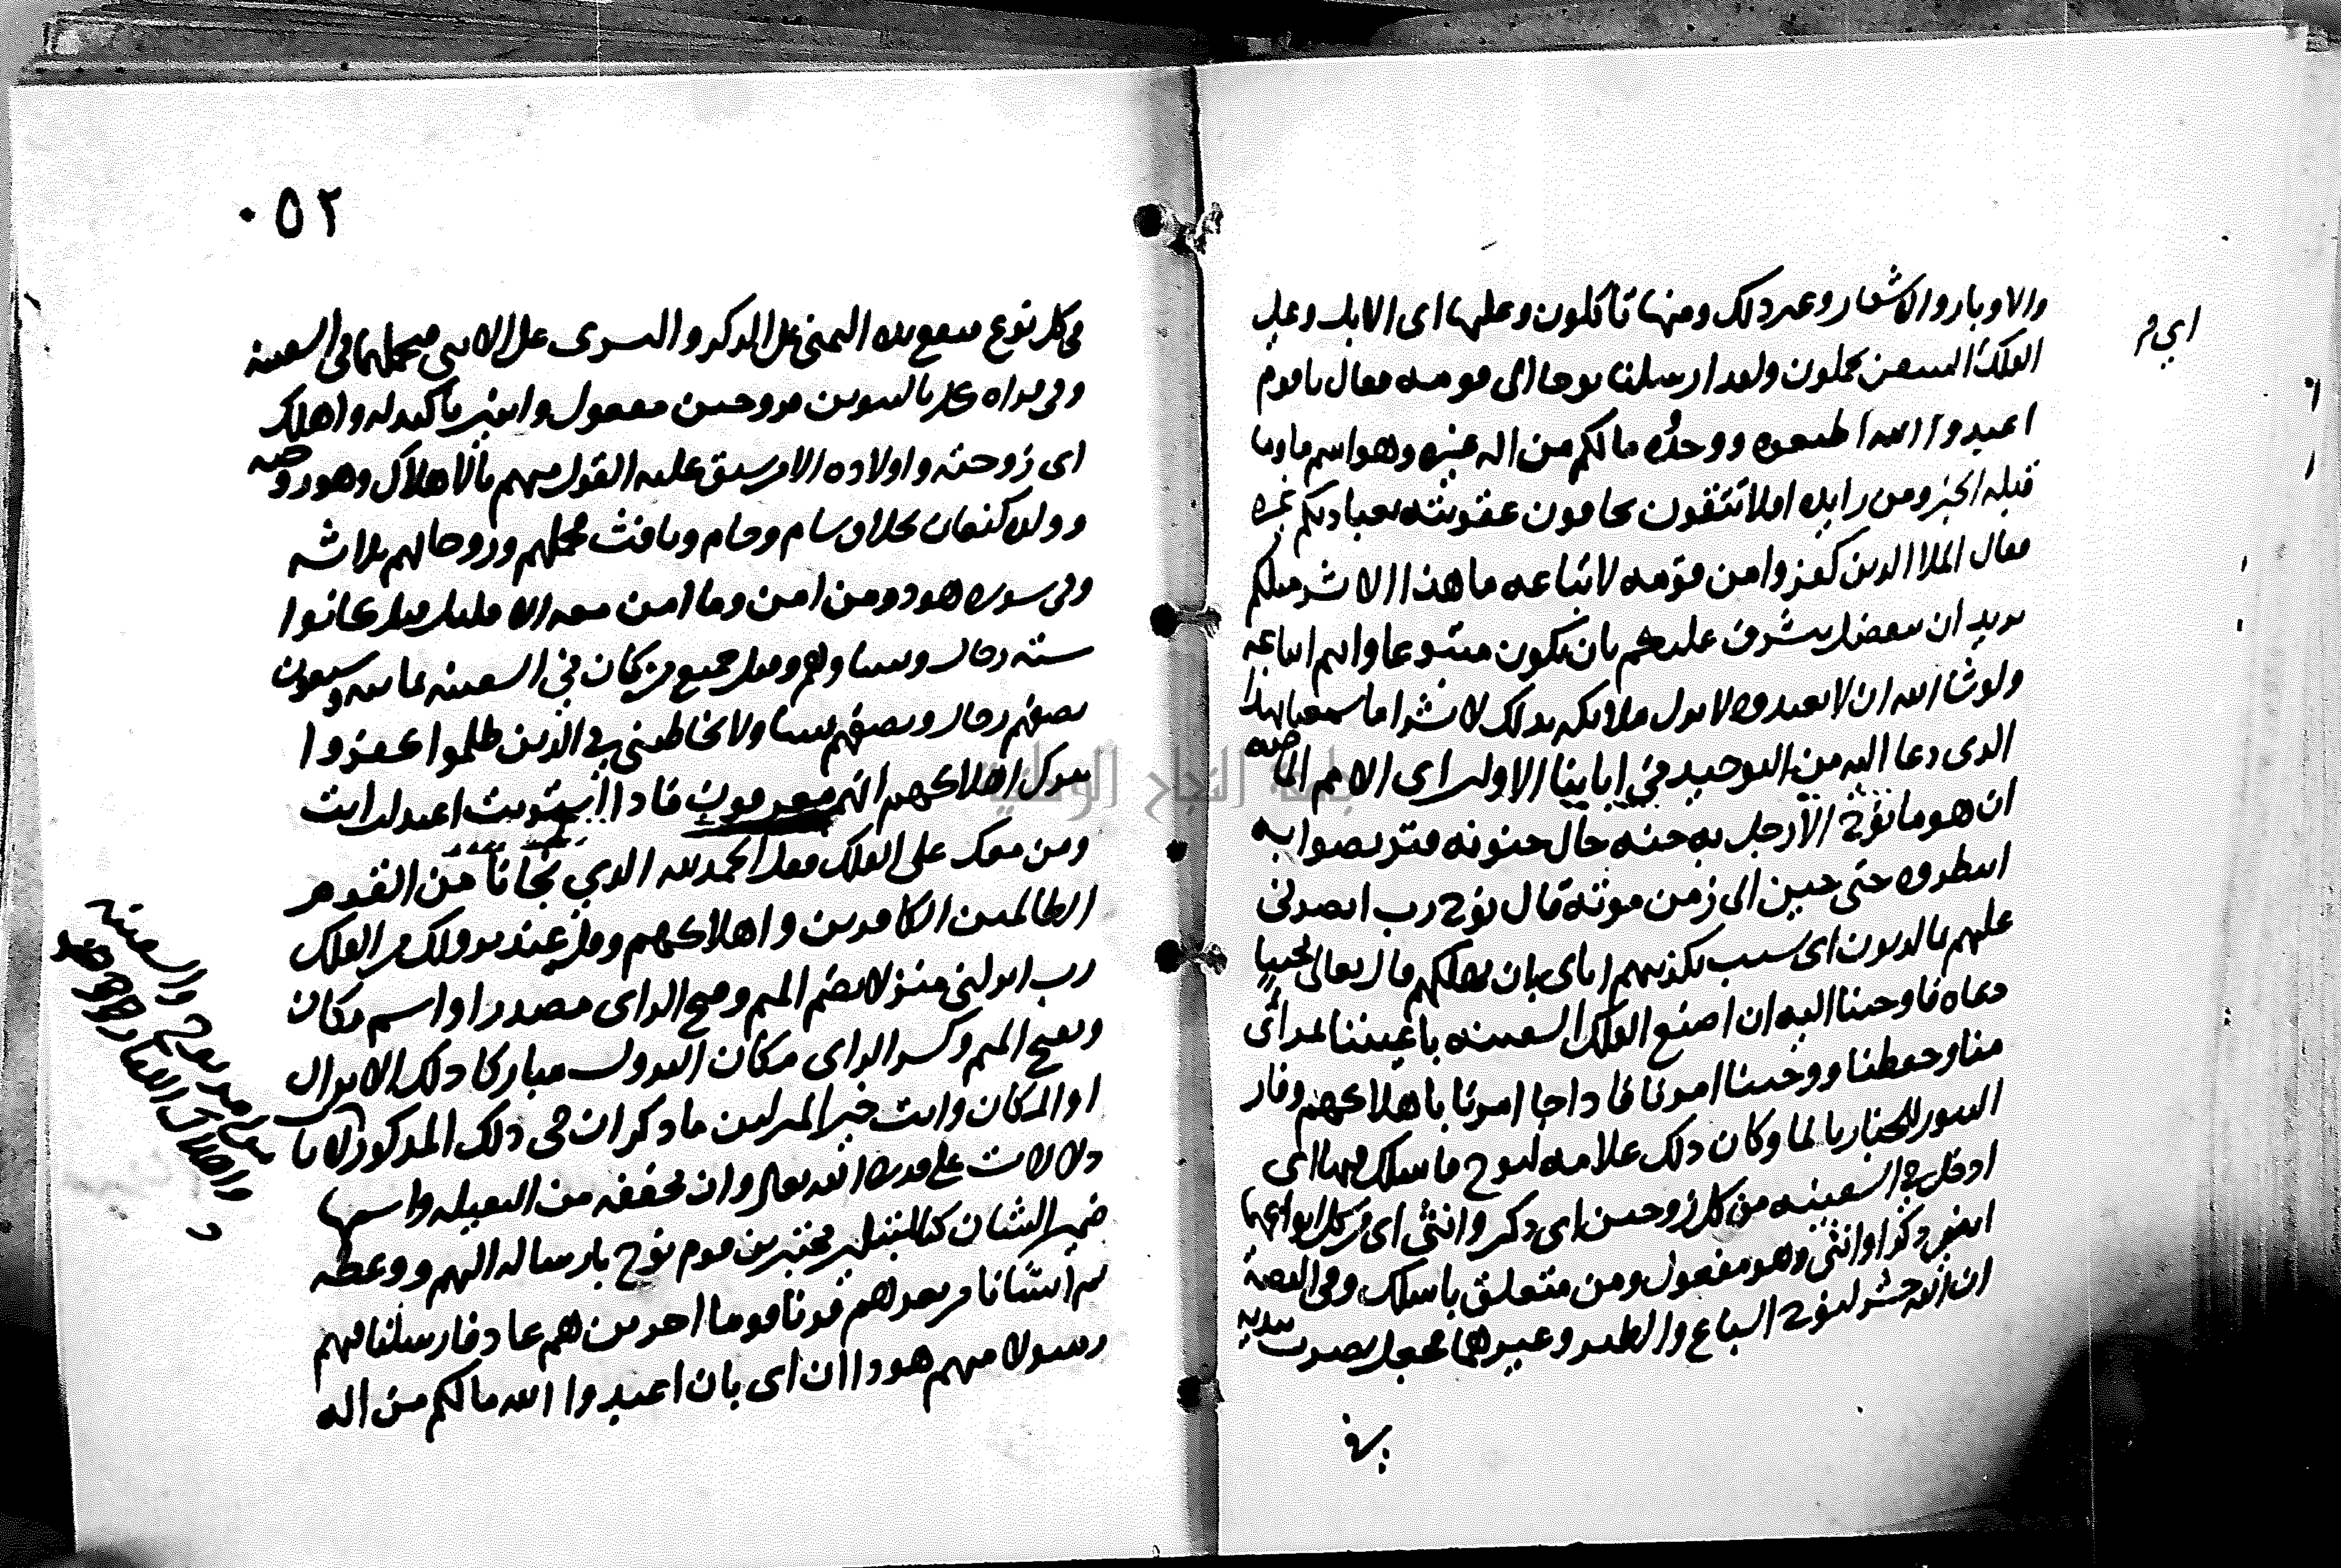 والاوبار والاشعار وغير ذلك ومنها تأكلون وعليها اى الابل وعلى
الفلك السفن تحملون ولقد ارسلنا نوحا الى قومه فقال يا قوم
اعبدوا الله اطيعوه ووحدوه مالكم من اله غيره وهو اسم ما وما
قبله الخبر ومن زايده افلا تتقون تخافون عقوبته بعبادتكم غيره
فقال الملا الذين كفروا من قومه لاتباعهم ما هذا الا بشر مثلكم
يريد ان يتفضل يتشرف عليكم بان يكون متبوعا وانتم اتباعه
ولو شا الله ان لا يعبد غيره لانزل ملائكه بذلك لا بشرا ما سمعنا بهذا
الذى دعا اليه من التوحيد فى ابائنا الاولين اى الامم الماضيه
ان هو ما نوح الا رجل به جنه حال جنونه فتربصوا به
انتظروه حتى حين الى زمن موته قال نوح رب انصرنى
عليهم بما كذبون اى بسبب تكذيبهم اياى بان تهلكهم قال تعالى مجيبا
دعاه فاوحينا اليه ان اصنع الفلك السفينه باعيننا بمراى
منا وحفظنا ووحينا امرنا فاذا جا امرنا باهلاكهم وفار
التنور للخباز بالما وكان ذلك علامه لنوح فاسلك فيها اى
ادخل فى السفينه من كل زوجين اى ذكر وانثى اى من كل انواعهما
اثنين ذكرا وانثى وهو مفعول ومن متعلق باسلك وفى القصة
ان الله حشر لنوح السباع والطير وغيرهما فجعل يضرب بيديه
فى
اي من
٠٥٢
فى كل نوع فتقع يده اليمنى على الذكر واليسرى على الانثى فيحملهما فى السفينه
وفى قراه كل بالتنوين فزوجين مفعول واثنين تأكيد له واهلك
اى زوجته واولاده الا من سبق عليه القول منهم بالاهلاك وهو زوجته
وولده كنعان بخلاف سام وحام ويافث فحملهم وزوجاتهم ثلاثه
وفى سوره هود ومن امن وما امن معه الا قليل قيل كانوا
سته رجال ونساؤهم وقيل جميع من كان في السفينه ثمانيه وسبعون
نصفهم رجال ونصفهم نسا ولا تخاطبنى في الذين ظلموا كفروا
بترك اهلاكهم انهم مغرقون فاذا استويت اعتدلت انت
ومن معك على الفلك فقل الحمد لله الذي نجانا من القوم
الظالمين الكافرين واهلاكهم وقل عند نزولك من الفلك
رب انزلنى منزلا بضم الميم وفتح الزاى مصدر او اسم مكان
وبفتح الميم وكسر الزاى مكان النزول مباركا ذلك الانزال
او المكان وانت خير المنزلين ما ذكر ان فى ذلك المذكور لايات
دلالات على قدره الله تعالى وان مخففه من الثقيله واسمها
ضمير الشان كنا لمبتلين مختبرين قوم نوح بارساله اليهم ووعظه
ثم انشانا من بعدهم قرنا قوما اخرين هم عاد فارسلنا فيهم
رسولا منهم هودا ان اى بان اعبدوا الله مالكم من اله
من امر نوح والسفينه
واهلاك الكفار